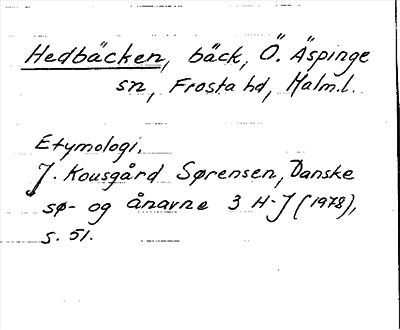 Hedbäcken, bäck, Ö. Äspinge
sn, Frosta hd, Malm.l.
Etymologi.
J. Kousgård Sørensen, Danske
sø- og ånavne 3 H-J (1978),
s. 51.